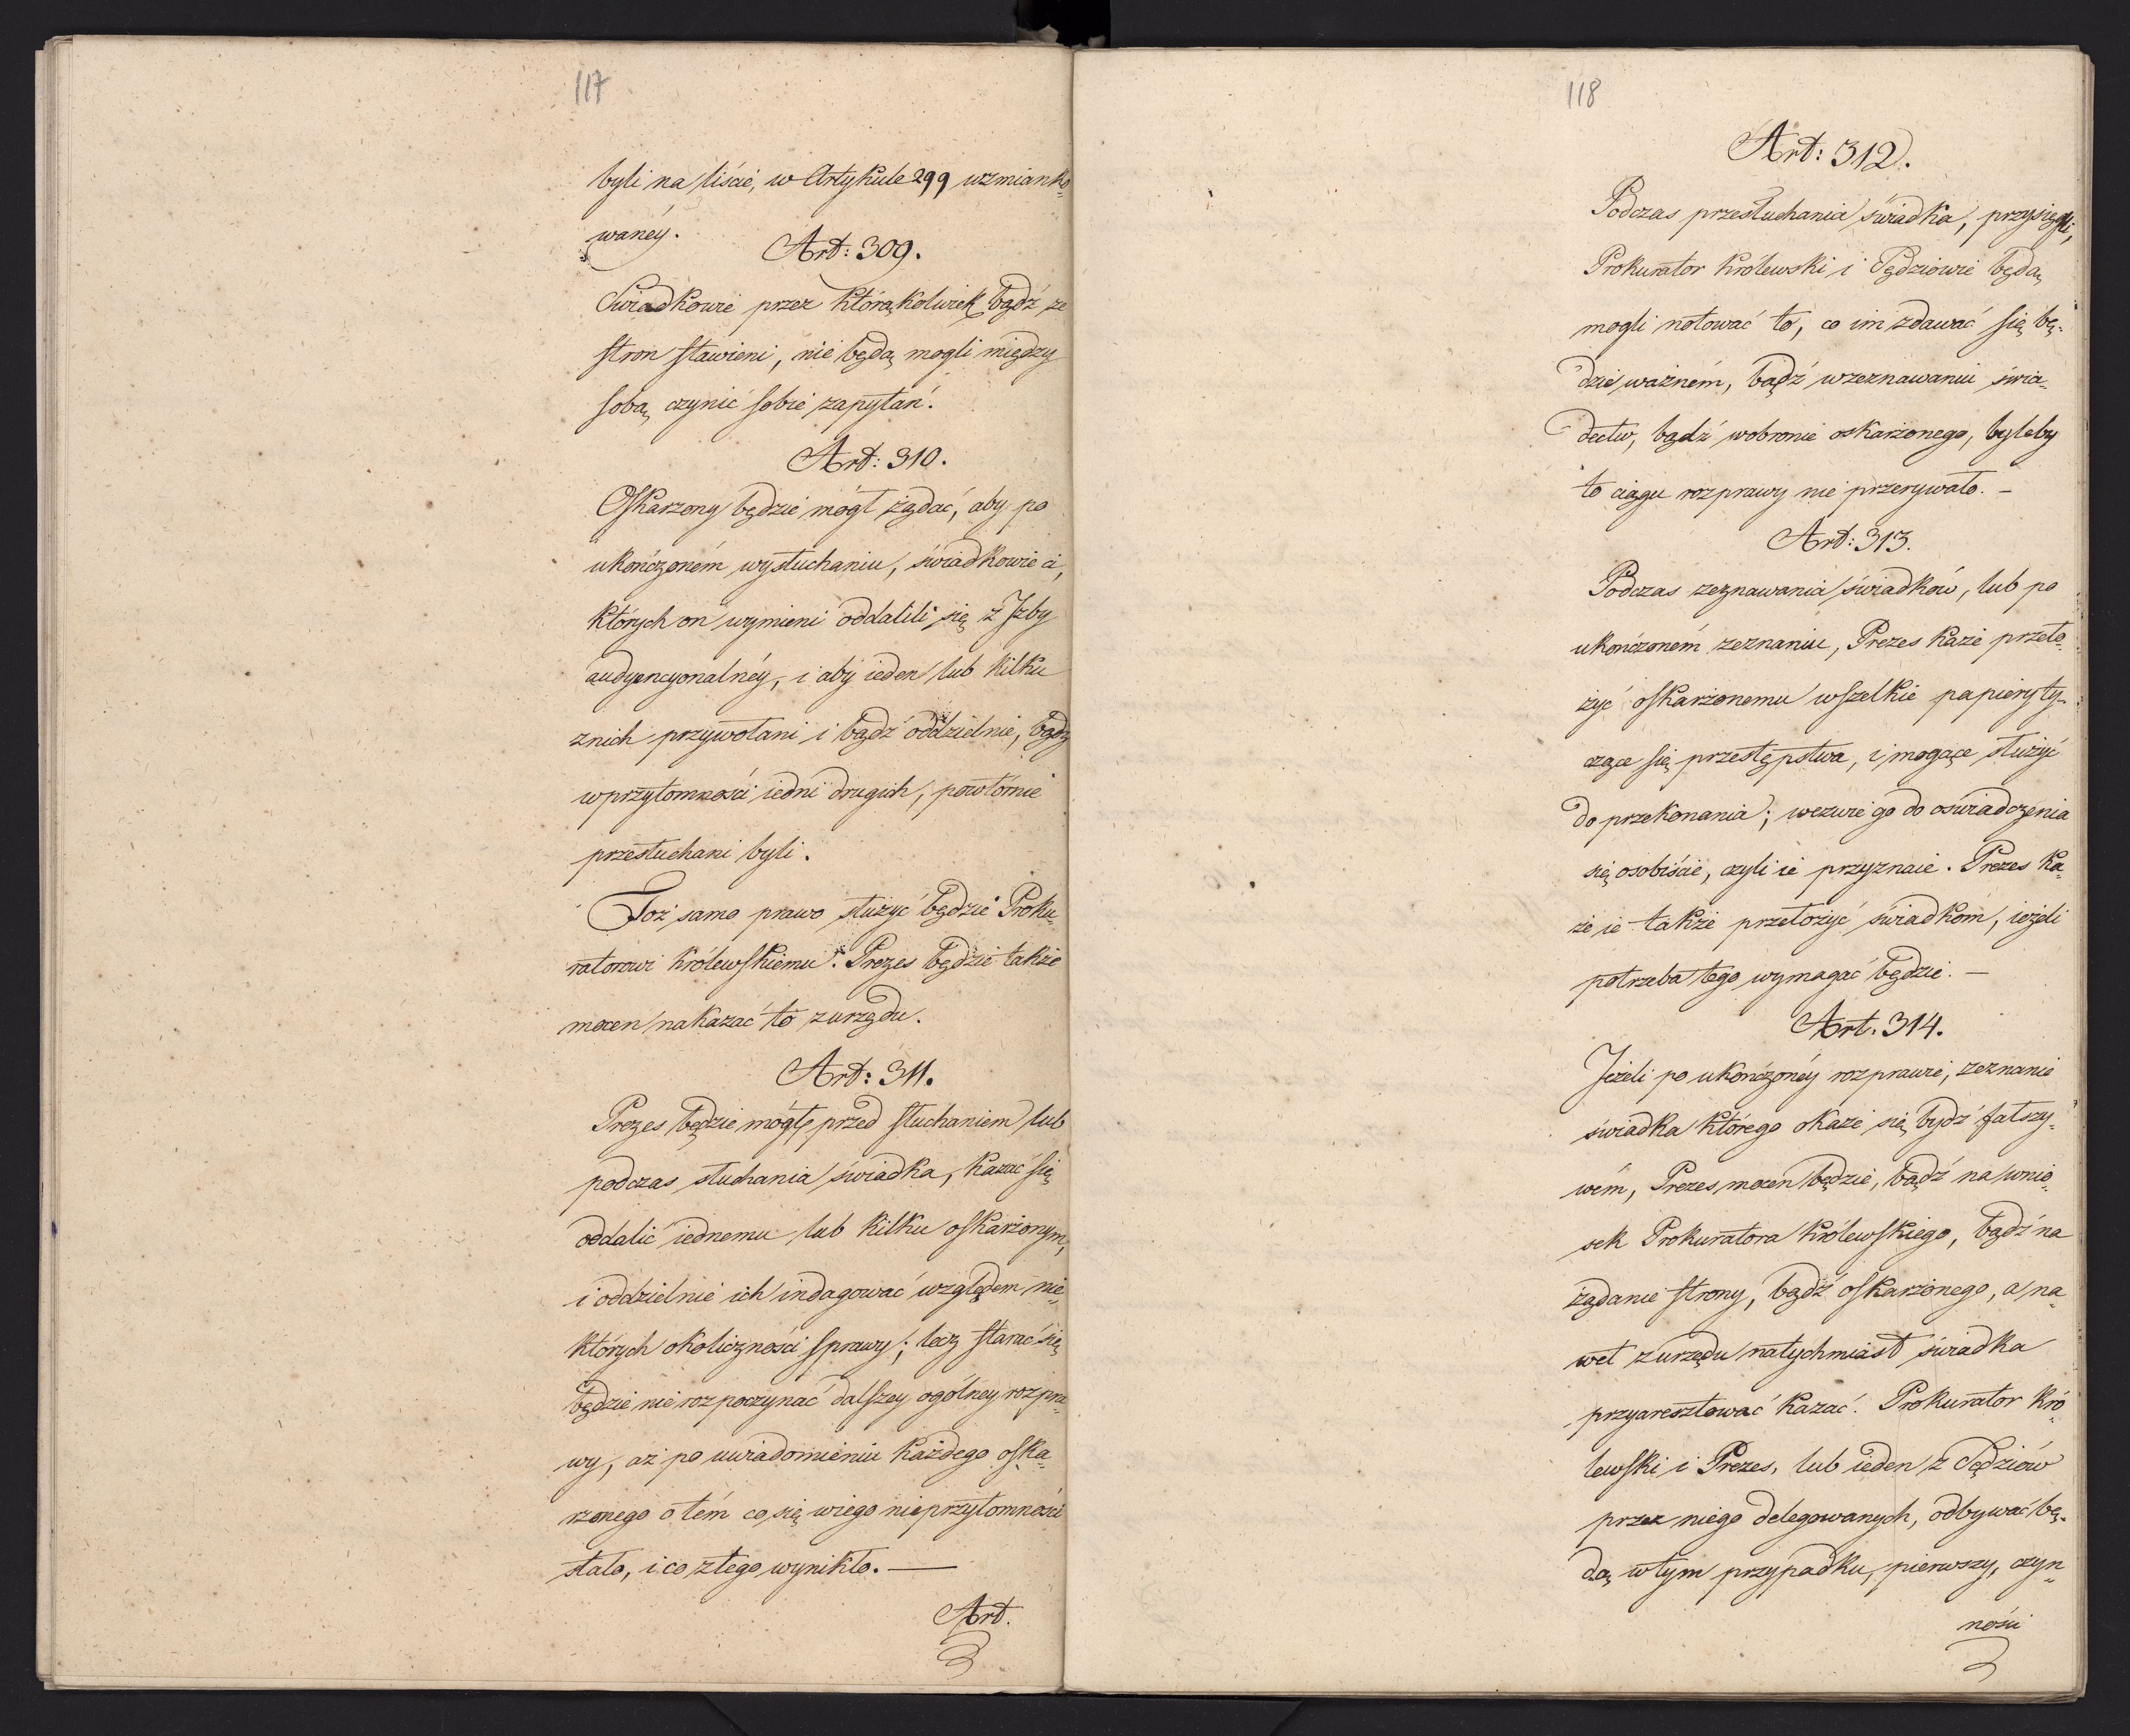 117
byli na liście, w Artykule 299 wzmianko„
wanéy.
Art: 309.
Swiadkowie przez którąkolwiek bądź ze
stron stawieni, nie będą mogli między
sobą czynić sobie zapytań.
Art: 310.
Oskarzony będzie mógł żądać, aby po
ukończoném wysłuchaniu, świadkowie ci,
których on wymieni oddalili się z Izby
audyencyonalnéy, i aby ieden lub kilku
znich przywołani i bądź oddzielnie, bądź
wprzytomności iedni drugich, powtórnie
przesłuchani byli.
Toż samo prawo służyć będzie Proku„
ratorowi Królewskiemu. Prezes będzie także
mocen nakazać to zurzędu.
Art: 311.
Prezes będzie mógł, przed słuchaniem lub
podczas słuchania świadka, kazać się
oddalić iednemu lub kilku oskarżonym,
i oddzielnie ich indagować względem nie„
których okoliczności sprawy; lecz starać się
będzie nie rozpoczynać dalszey ogólney rozpra„
wy, aż po uwiadomieniu każdego oska„
rzonego o tém co się wiego nieprzytomności
stało, i co ztego wynikło. —
Art.
118
Art: 312.
Podczas przesłuchania świadka, przysięgli,
Prokurator Królewski i Sędziowie będą
mogli notować to, co im zdawać się bę„
dzie ważném, bądź wzeznawaniu świa„
dectw, bądź wobronie oskarżonego, byleby
to ciągu rozprawy nie przerywało. —
Art: 313.
Podczas zeznawania świadków, lub po
ukończoném zeznaniu, Prezes każe przeło„
żyć oskarżonemu wszelkie papiery ty„
czące się przestępstwa, i mogące służyć
do przekonania; wezwie go do oświadczenia
się osobiście, czyli ie przyznaie. Prezes ka„
że ie także przełożyć świadkom, ieżeli
potrzeba tego wymagać będzie. —
Art. 314.
Jeżeli po ukończonéy rozprawie, zeznanie
świadka którego okaże się bydź fałszy„
wém, Prezes mocen będzie, bądź na wnio„
sek Prokuratora Królewskiego, bądź na
żądanie strony, bądź oskarżonego, a na„
wet zurzędu natychmiast świadka
przyaresztować kazać. Prokurator Kró„
lewski i Prezes, lub ieden z Sędziów
przez niego delegowanych, odbywać bę„
dą wtym przypadku, pierwszy, czyn„
ności